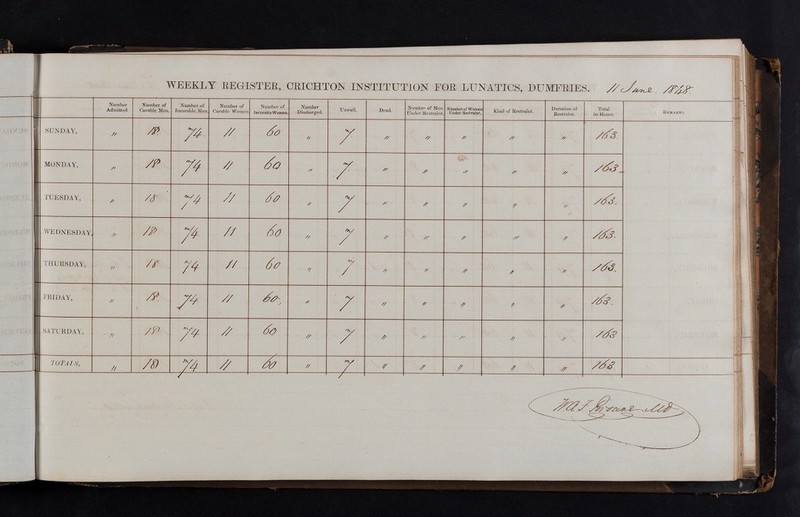 WEEKLY REGISTER, CRICHTON INSTITUTION FOR LUNATICS, DUMFRIES. 11 June 1848.
Number Admitted. Number of Curable Men. Number of Incurable Men. Number of Curable Women. Number of Incurable Women. Number Discharged. Unwell. Dead. Number of Men Under Restraint. Number of Women Under Restraint. Kind of Restraint. Duration of Restraint. Total in House. REMARKS.
SUNDAY, " 18 74 11 60 " 7 " " " " " 163.
MONDAY, " 18 74 11 60 " 7 " " " " " 163.
TUESDAY, " 18 74 11 60 " 7 " " " " " 163.
WEDNESDAY, " 18 74 11 60 " 7 " " " " " 163.
THURSDAY, " 18 74 11 60 " 7 " " " " " 163.
FRIDAY, " 18 74 11 60. " 7 " " " " " 163.
SATURDAY, " 18 74 11 60 " 7 " " " " " 163
TOTALS, " 18 74 11 60 " 7 " " " " " 163
W A F Browne MD